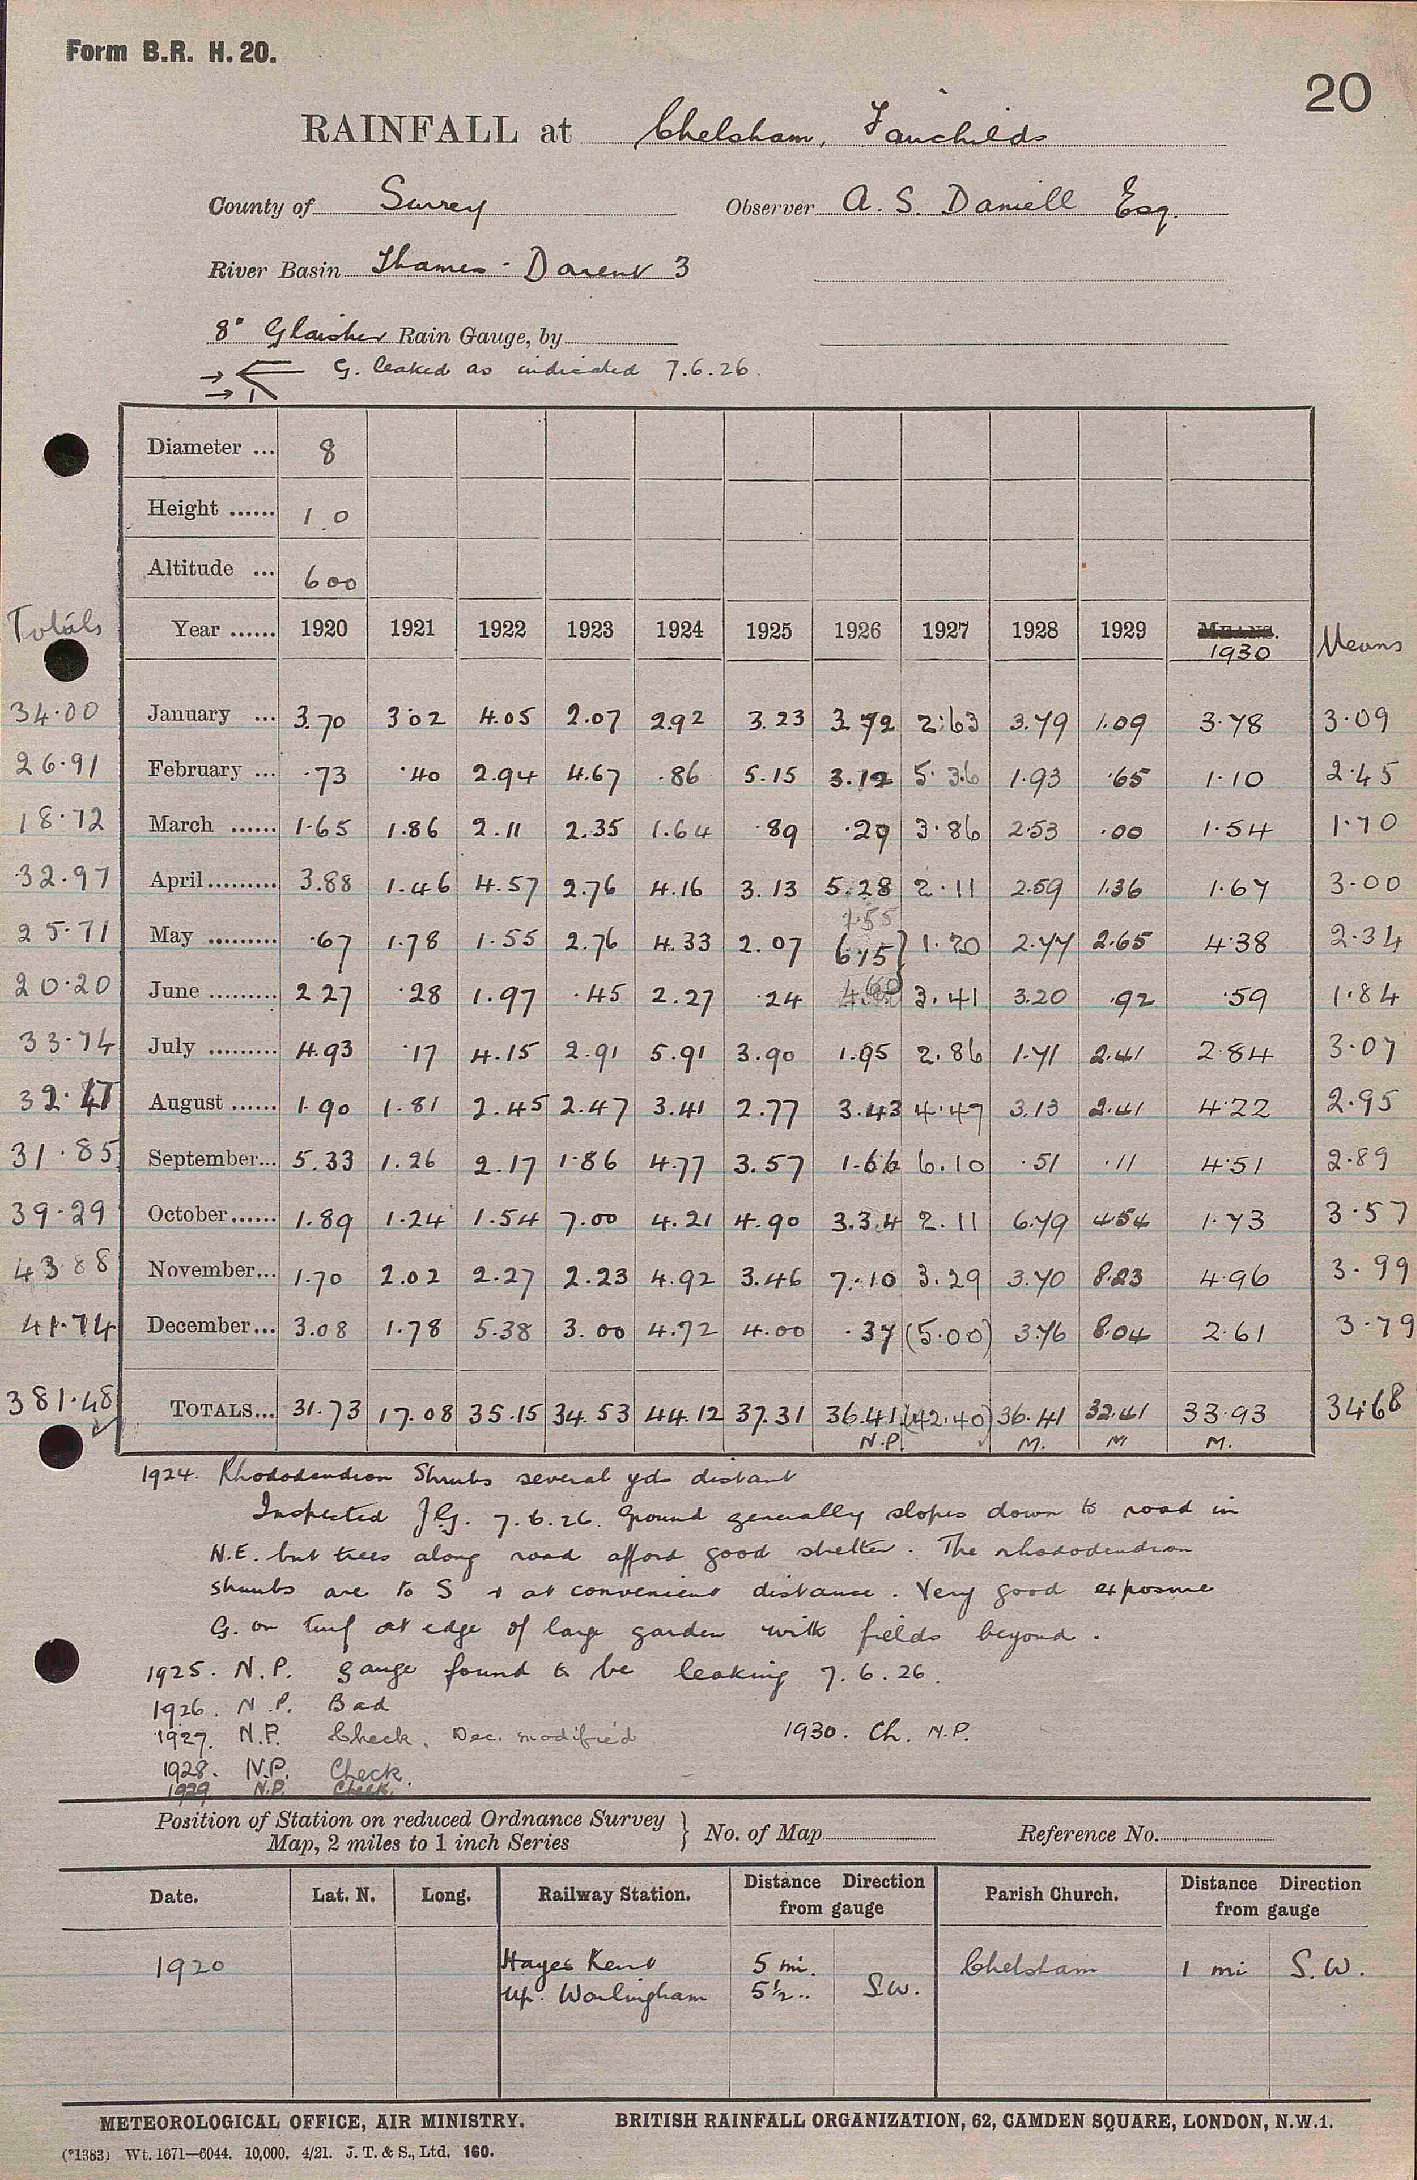 Form B.R. H. 20.
20
RAINFALL at Chelsham, Fairchilds
County of Surrey Observer A. S. Daniell Esq.
River Basin Thames - Darent 3
8" Glaisher Rain Gauge, by
G. leaked as indicated 7.6.26.
Diameter ... 8
Height ...... 1 0
Altitude ... 600
Totals Year ...... 1920 1921 1922 1923 1924 1925 1926 1927 1928 1929 MEANS. 1930 Means
34.00 January ... 3.70 3.02 4.05 2.07 2.92 3.23 3.72 2.63 3.79 1.09 3.78 3.09
26.91 February ... .73 .40 2.94 4.67 .86 5.15 3.12 5.36 1.93 .65 1.10 2.45
18.72 March ...... 1.65 1.86 2.11 2.35 1.64 .89 .29 3.86 2.53 .00 1.54 1.70
32.97 April......... 3.88 1.46 4.57 2.76 4.16 3.13 5.28 2.11 2.59 1.36 1.67 3.00
25.71 May ......... .67 1.78 1.55 2.76 4.33 2.07 1.55 6.15} 1.70 2.77 2.65 4.38 2.34
20.20 June ......... 2.27 .28 1.97 .45 2.27 .24 4.60 3.41 3.20 .92 .59 1.84
33.74 July ......... 4.93 .17 4.15 2.91 5.91 3.90 1.95 2.86 1.71 2.41 2.84 3.07
32.47 August ...... 1.90 1.81 2.45 2.47 3.41 2.77 3.43 4.47 3.13 2.41 4.22 2.95
31.85 September... 5.33 1.26 2.17 1.86 4.77 3.57 1.66 6.10 .51 .11 4.51 2.89
39.29 October...... 1.89 1.24 1.54 7.00 4.21 4.90 3.34 2.11 6.79 4.54 1.73 3.57
43.88 November... 1.70 2.02 2.27 2.23 4.92 3.46 7.10 3.29 3.70 8.23 4.96 3.99
41.74 December... 3.08 1.78 5.38 3.00 4.72 4.00 .37 (5.00) 3.76 8.04 2.61 3.79
381.48 TOTALS... 31.73 17.08 35.15 34.53 44.12 37.31 36.41 (42.40) 36.41 32.41 33.93 34.68
N.P. M. M M.
1924. Rhododendron Shrubs several yds distant
Inspected J.G. 7.6.26. Ground generally slopes down to road in
N.E. but trees along road afford good shelter. The rhododendron
shrubs are to S + at convenient distance. Very good exposure
G. on turf at edge of large garden with fields beyond.
1925. N.P. gauge found to be leaking 7.6.26.
1926. N.P. Bad
1927. N.P. Check, Dec. modified 1930. Ch. N.P.
1928. N.P. Check.
1929 N.P. Check.
Position of Station on reduced Ordnance Survey
Map, 2 miles to 1 inch Series } No. of Map Reference No.
Date. Lat. N. Long. Railway Station. Distance Direction from gauge Parish Church. Distance Direction from gauge
1920 Hayes Kent 5 mi. Chelsham 1 mi S.W.
Up. Warlingham 5½ .. S.W.
METEOROLOGICAL OFFICE, AIR MINISTRY. BRITISH RAINFALL ORGANIZATION, 62, CAMDEN SQUARE, LONDON, N.W.1.
(*1383) Wt. 1671—6044. 10,000. 4/21. J. T. & S., Ltd. 160.